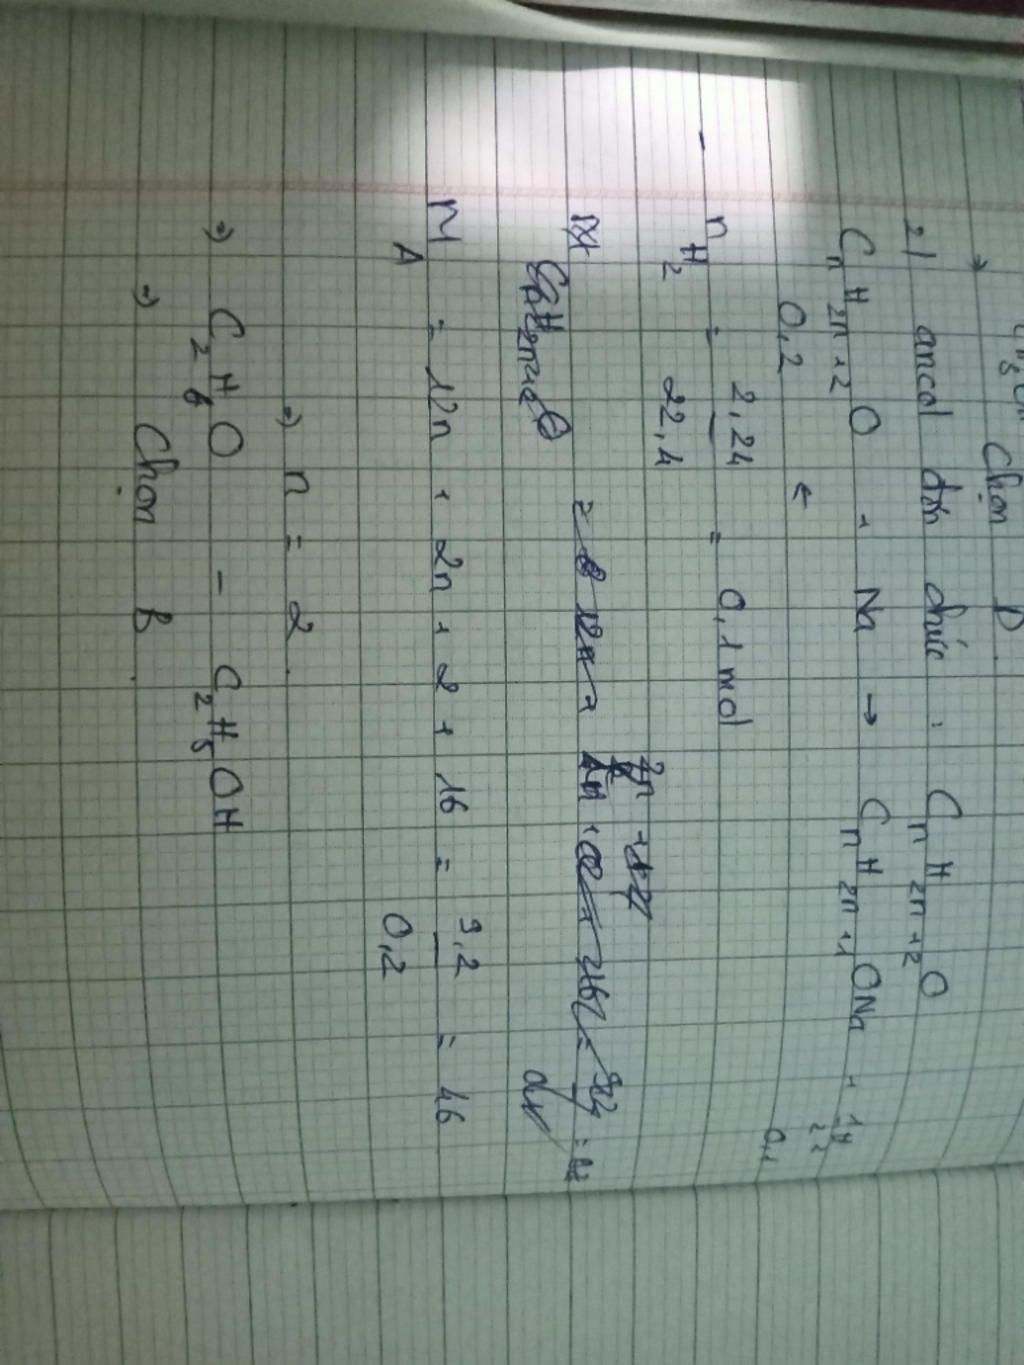 Chọn D
2) ancol đơn chức : CnH2n+2O
CnH2n+2O + Na → CnH2n+1ONa + 1/2 H2
0,2 ← 0,1
nH2 = 2,24/22,4 = 0,1 mol
MA = 12n + 2n + 2 + 16 = 9,2/0,2 = 46
⇒ n = 2
⇒ C2H6O - C2H5OH
⇒ Chọn B.